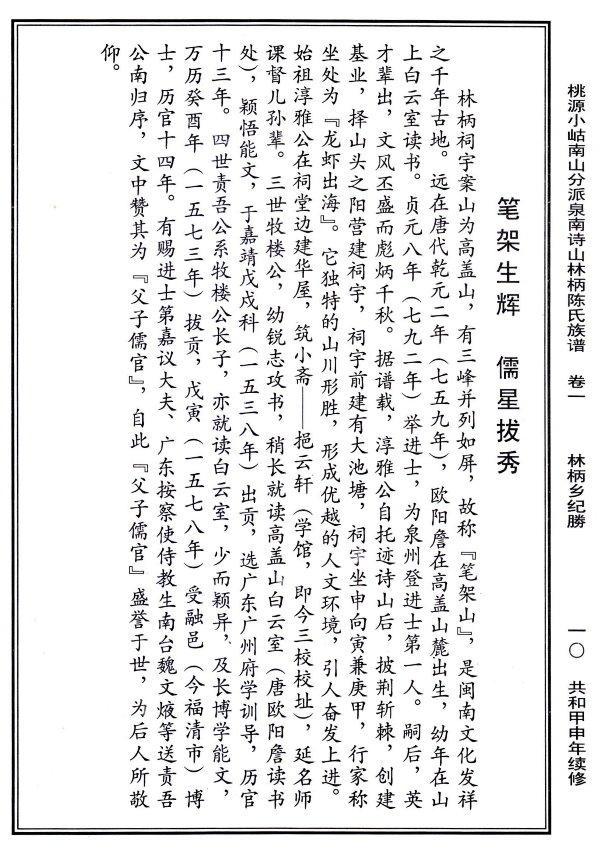 桃源小岵南山分派泉南诗山林柄陈氏族谱　卷一　林柄乡纪勝　一〇　共和甲申年续修
笔架生辉　儒星拔秀
林柄祠宇案山为高盖山，有三峰并列如屏，故称『笔架山』，是闽南文化发祥
之千年古地。远在唐代乾元二年（七五九年），欧阳詹在高盖山麓出生，幼年在山
上白云室读书。贞元八年（七九二年）举进士，为泉州登进士第一人。嗣后，英
才辈出，文风丕盛而彪炳千秋。据谱载，淳雅公自托迹诗山后，披荆斩棘，创建
基业，择山头之阳营建祠宇，祠宇前建有大池塘，祠宇坐申向寅兼庚甲，行家称
坐处为『龙虾出海』。它独特的山川形胜，形成优越的人文环境，引人奋发上进。
始祖淳雅公在祠堂边建华屋，筑小斋——挹云轩（学馆，即今三校校址），延名师
课督儿孙辈。三世牧楼公，幼锐志攻书，稍长就读高盖山白云室（唐欧阳詹读书
处），颖悟能文，于嘉靖戊戌科（一五三八年）出贡，选广东广州府学训导，历官
十三年。四世责吾公系牧楼公长子，亦就读白云室，少而颖异，及长博学能文，
万历癸酉年（一五七三年）拔贡，戊寅（一五七八年）受融邑（今福清市）博
士，历官十四年。有赐进士第嘉议大夫、广东按察使侍教生南台魏文焲等送责吾
公南归序，文中赞其为『父子儒官』，自此『父子儒官』盛誉于世，为后人所敬
仰。